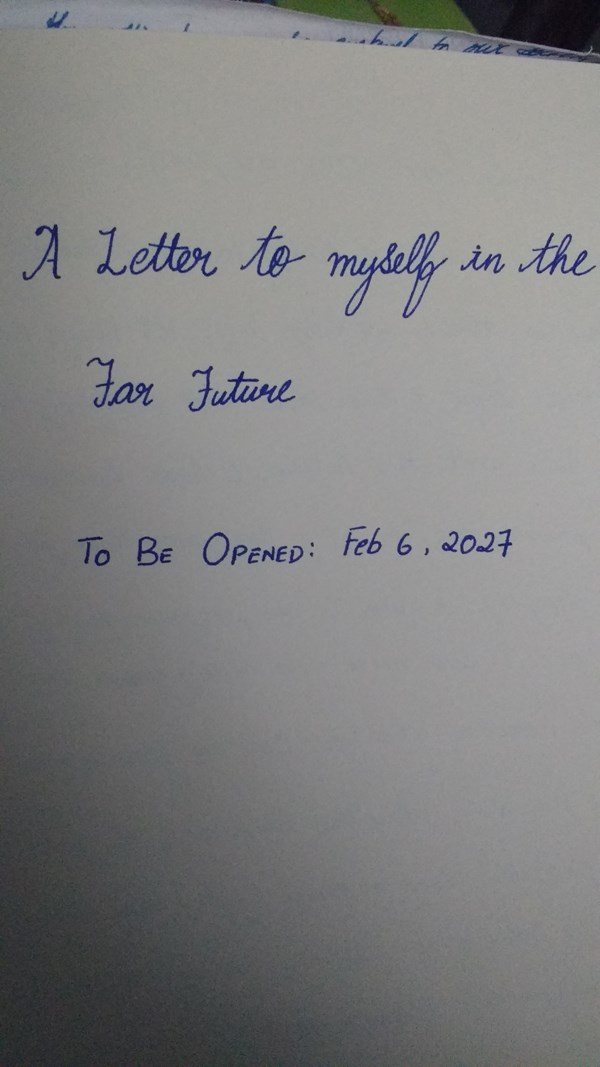 to our
A Letter to myself in the
Far Future
To Be Opened: Feb 6, 2027